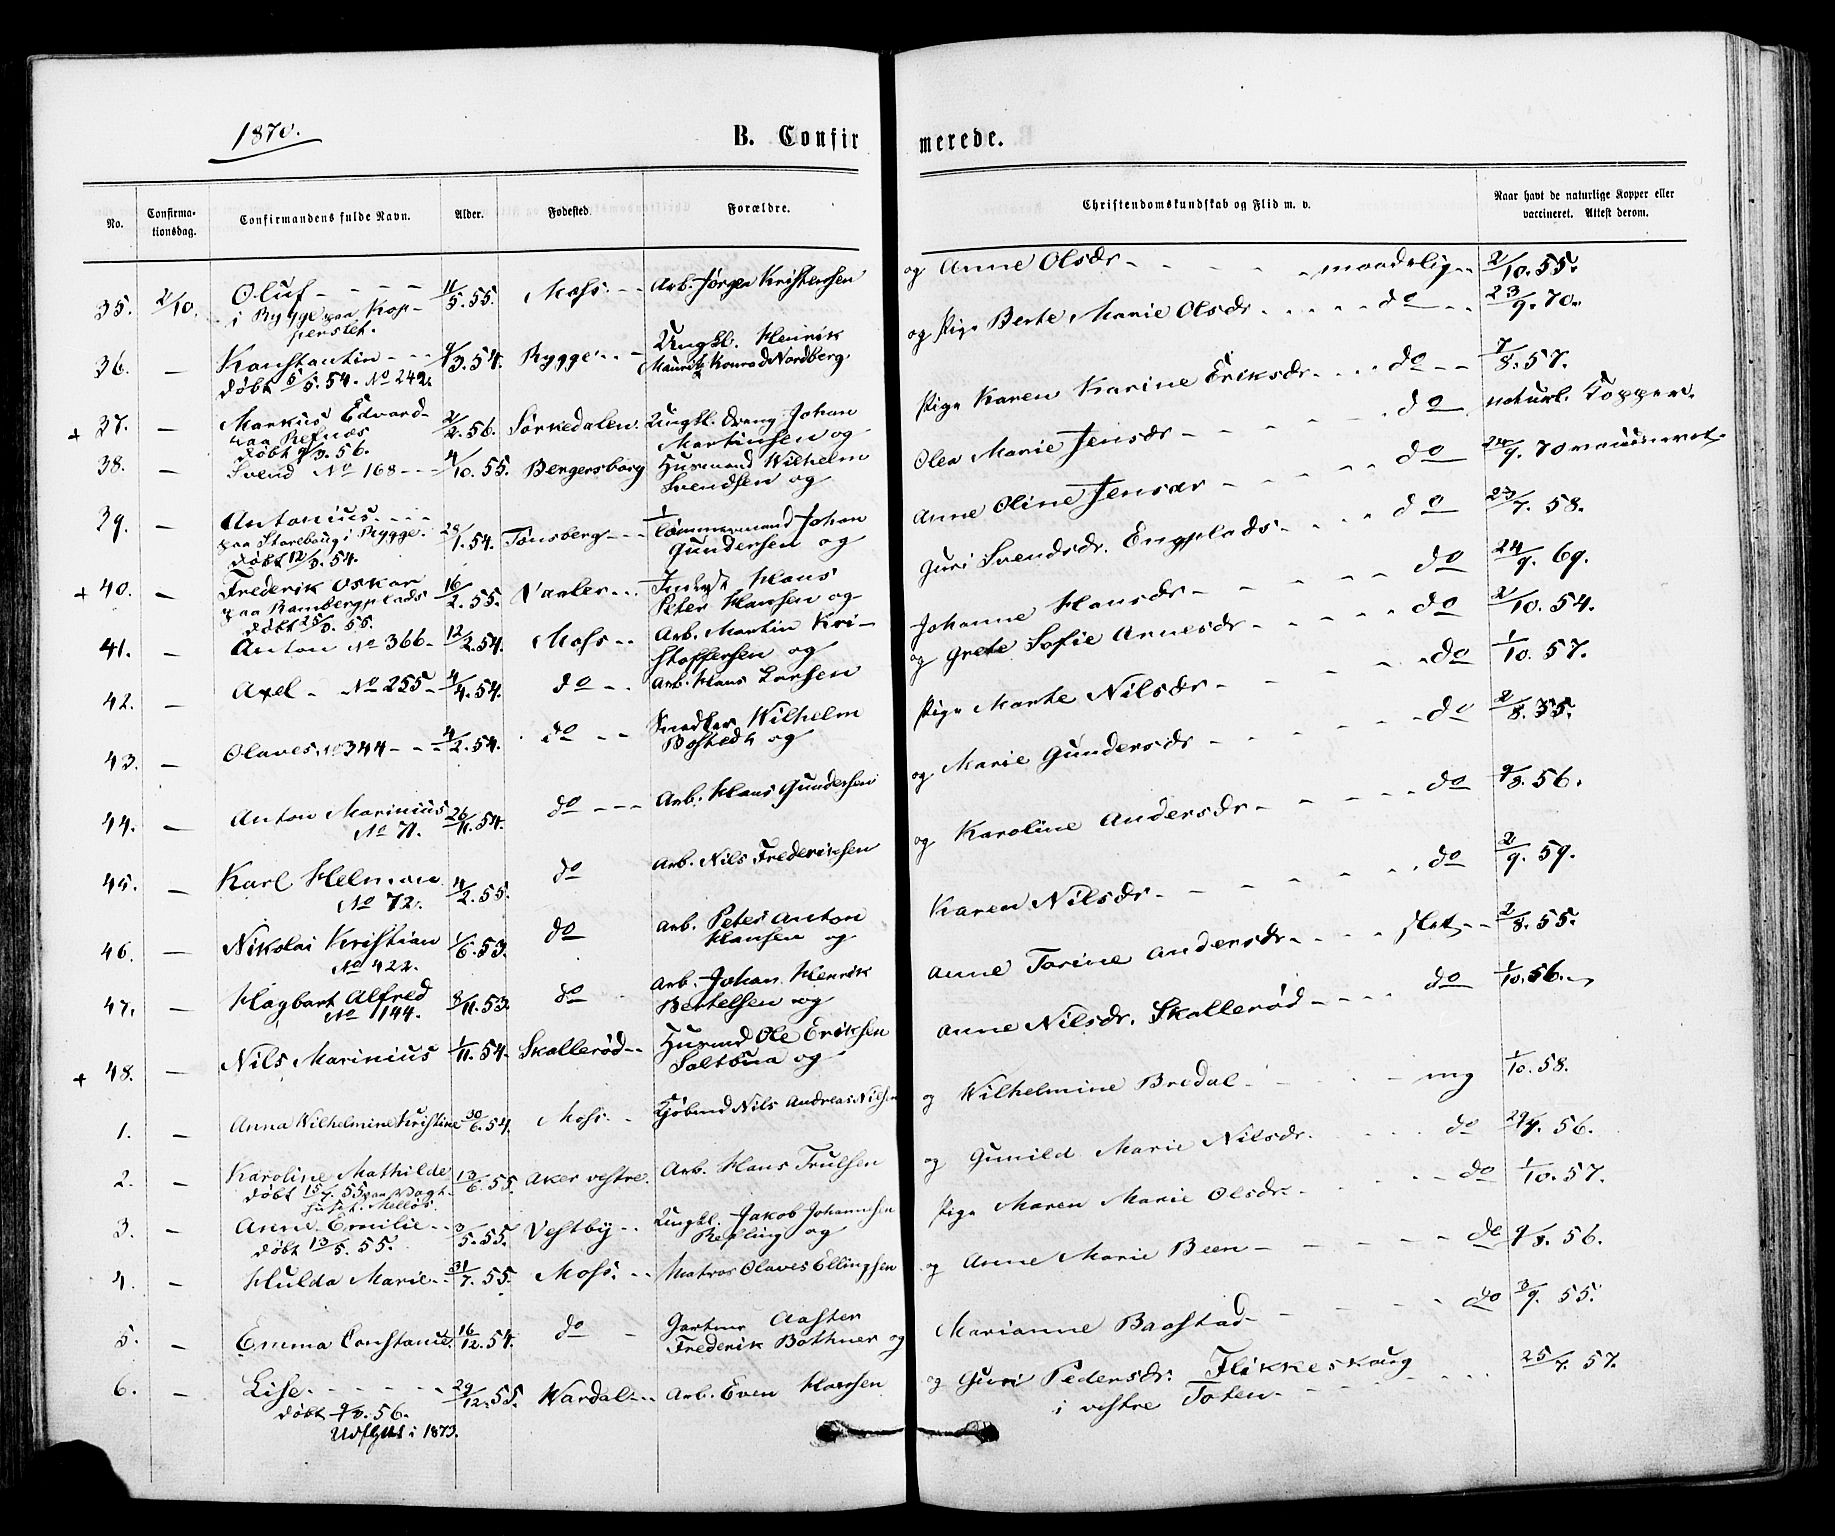 1870.
B. Confirmerede.
No. Confirmationsdag. Confirmandens fulde Navn. Alder. Fødested. Forældre. Christendomskundskab og Flid m. v. Naar havt de naturlige Kopper eller vaccineret. Attest derom.
35. 2/10. Oluf - - - - 11/5. 55. Moss. - - Arb. Jørgen Kristensen og Anne Olsdr - - - - - maadelig - - 2/10. 55.
i Rygge paa Kop-
perslet.
36. — Konstantin - - - 9/3. 54. Rygge - - - Ungkl. Henrik og Pige Berte Marie Olsdr - - - - do - - 23/9. 70.
døbt 5/5. 54. No 249. Mauritz Konrad Nordberg.
+ 37. — Markus Edvard - 2/2. 56. Sørkedalen. Ungkl. Dreng Johan Pige Karen Karine Eriksdr - - - do - - 7/8. 57.
paa Refnæs Martinsen og
døbt 9/3. 56.
38. — Svend No 168 - - - 4/10. 55. Bergersborg Husmand Wilhelm Olea Marie Jensdr - - - - do naturl. Kopper.
Svendsen og
39. — Antonius - - - 20/1. 54. Tønsberg - - - Tømmermand Johan Anne Oline Jensdr - - - - do 24/9. 70 vaccineret.
paa Storebaug i Rygge. Gundersen og
døbt 12/3. 54.
+ 40. — Frederik Oskar 16/2. 55. Vaaler - - - Inderst Hans Guri Svendsdr. Engplads - - - - do 23/7. 58.
paa Rambergplads Peter Hansen og
døbt 25/3. 55.
41. — Anton No 366 - 12/2. 54. Moss - - Arb. Martin Kri- Johanne Hansdr - - - - - do 24/9. 69.
stoffersen og
42. — Axel - No 255 - 4/4. 54. do - - Arb. Hans Larsen og Grete Sofie Arnesdr - - - - do 2/10. 54.
43. — Olaves. No 344 - - - 4/2. 54. do - - Smedsv. Wilhelm Pige Marte Nilsdr - - - - - do 1/10. 57.
Bostedt og
44. — Anton Marinius 26/11. 54. do - - - Arb. Hans Gundersen og Marie Gundersdr - - - - - do 2/8. 55.
No 71.
45. — Karl Helman 4/2. 55. do Arb. Nils Frederiksen og Karoline Andersdr - - - - - do 9/8. 56.
No 72.
46. — Nikolai Kristian 1/6. 53. do Arb. Peter Anton Karen Nilsdr - - - - - - do 2/9. 59.
No 422. Hansen og
47. — Hagbart Alfred 8/11. 53. do Arb. Johan Henrik Anne Torine Andersdr - - - - slet - - 2/8. 55.
No 144. Bertelsen og
+ 48. — Nils Marinius 1/11. 54. Skallerød - - Husmd Ole Eriksen Anne Nilsdr. Skallerød - - - - do 1/10. 56.
Saltbua og
1. — Anna Wilhelmine Kristine 30/6. 54. Moss. - - Kjøbmd Nils Andreas Nilsen og Wilhelmine Bredal - - - - mg 1/10. 58.
2. — Karoline Mathilde 13/6. 55. Aker vestre. Arb. Hans Trulsen og Gunild Marie Nilsdr. - - - - do 29/7. 56.
døbt 15/7. 55 paa Vagt-
huset. Melløs.
3. — Anne Emilie - - 3/5. 55. Vestby - - Ungkl. Jakob Johannesen Pige Maren Marie Olsdr - - - - do 1/10. 57.
døbt 13/5. 55. Refling og
4. — Hulda Marie - - 31/7. 55. Moss. - - Matros Olaves Ellingsen og Anne Marie Been - - - - - - do 9/8. 56.
5. — Emma Constance. 16/12. 54. do - Gartner Aasten Marianne Baastad - - - - - do 3/9. 55.
Frederik Bothner og
6. — Lise - - - - - - 29/12. 55. Wardal - - - Arb. Even Hansen og Guri Pedersdr. Flikkeshaug 25/7. 57.
døbt 9/3. 56. i vestre Toten - - - - - -
Udflyttet i 1873.